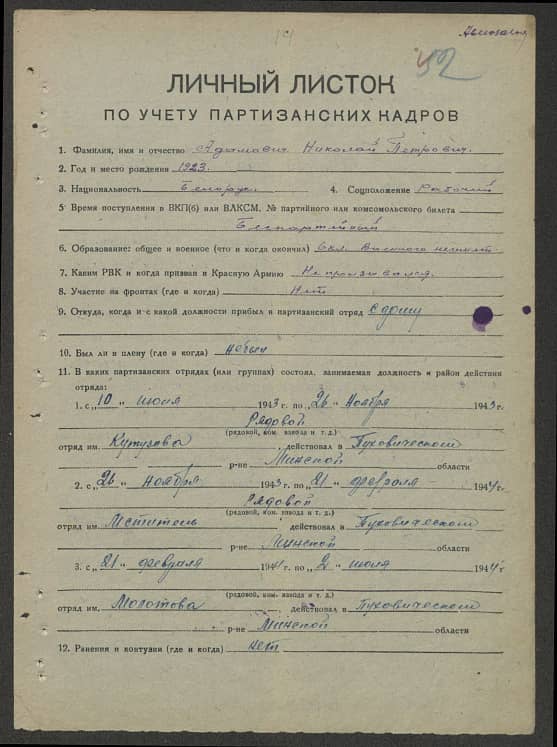 52
ЛИЧНЫЙ ЛИСТОК
ПО УЧЕТУ ПАРТИЗАНСКИХ КАДРОВ
1. Фамилия, имя и отчество Адамович Николай Петрович.
2. Год и место рождения 1923.
3. Национальность Белорус. 4. Соцположение Рабочий
5 Время поступления в ВКП(б) или ВЛКСМ. № партийного или комсомольского билета
Беспартийный
6. Образование: общее и военное (что и когда окончил) 6кл. Военного
7. Каким РВК и когда призван в Красную Армию Не призывался.
8. Участие на фронтах (где и когда) Нет
9. Откуда, когда и с какой должности прибыл в партизанский отряд с дому
10. Был ли в плену (где и когда) небыл
11. В каких партизанских отрядах (или группах) состоял, занимаемая должность и район действия
отряда:
1. с „10 " июля 1943 г. по „26 " Ноября 1943 г.
Рядовой
(рядовой, ком. взвода и т. д.)
отряд им. Кутузова действовал в Пуховическом
р-не Минской области
2. с „26 " Ноября 1943 г. по „21 " февраля 1944 г.
Рядовой
(рядовой, ком. взвода и т. д.)
отряд им. Мститель действовал в Пуховическом
р-не Минской области
3. с „21 " февраля 1944 г. по „2 " июля 1944 г
(рядовой, ком. взвода и т. д.)
отряд им. Молотова действовал в Пуховическом
р-не Минской области
12. Ранения и контузии (где и когда) нет